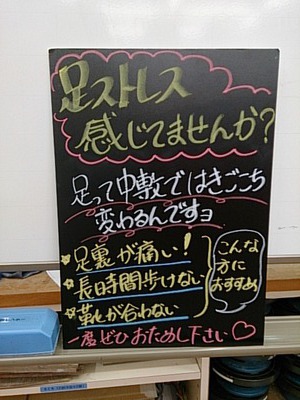 足ストレス
感じてませんか?
足って中敷ではきごこち
変わるんですヨ
足裏が痛い!
長時間歩けない
靴が合わない
こんな
方に
おすすめ
一度ぜひおためし下さい♡